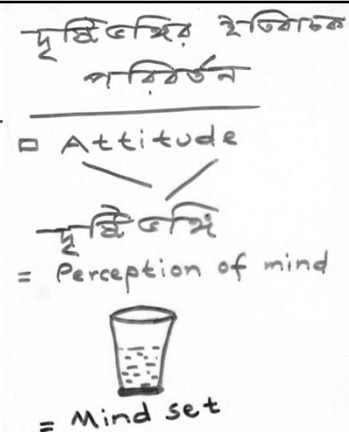 দৃষ্টিভঙ্গির ইতিবাচক
পরিবর্তন
□ Attitude
দৃষ্টিভঙ্গি
= Perception of mind
= Mind set